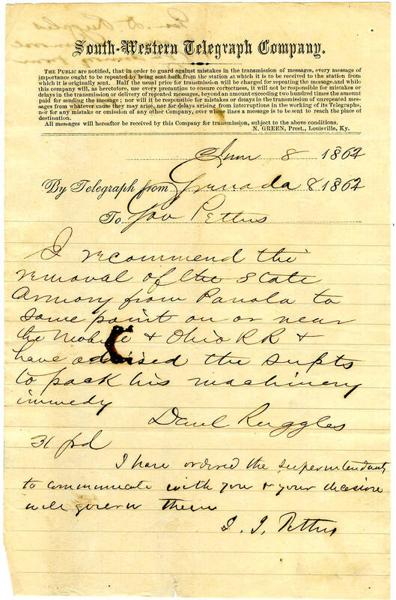 South-Western Telegraph Company.
THE PUBLIC are notified, that in order to guard against mistakes in the transmission of messages, every message of
importance ought to be repeated by being sent back from the station at which it is to be received to the station from
which it is originally sent. Half the usual price for transmission will be charged for repeating the message, and while
this company will, as heretofore, use every precaution to ensure correctness, it will not be responsible for mistakes or
delays in the transmission or delivery of repeated messages, beyond an amount exceeding two hundred times the amount
paid for sending the message; nor will it be responsible for mistakes or delays in the transmission of unrepeated messages
from whatever cause they may arise, nor for delays arising from interruptions in the working of its Telegraphs,
nor for any mistake or omission of any other Company, over whose lines a message is to be sent to reach the place of
destination.
All messages will hereafter be received by this Company for transmission, subject to the above conditions.
N. GREEN, Prest., Louisville, Ky.
June 8 1862
By Telegraph from Grenada 8 1862
To Gov Pettus
I recommend the
removal of the State
Armory from Panola to
some point on or near
the Mobile & Ohio RR &
have advised the supts
to pack his machinery
immedy
Danl Ruggles
31 pd
I have ordered the superintendants
to communicate with you & your decision
will govern them
J. J. Pettus